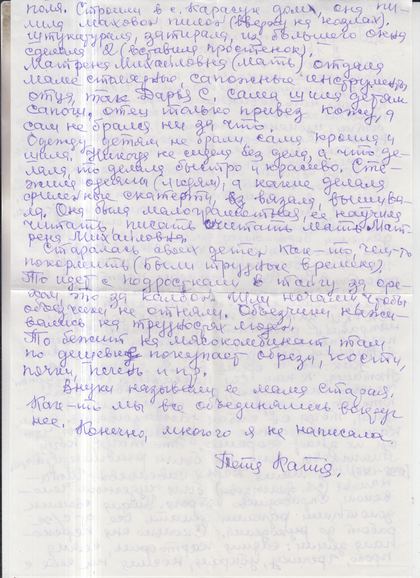 поля. Строили в с. Карасук дом, она пи-
лила маховой пилой (вверху на козлах).
штукатурила, затирала, из большого окна
сделала 2 (вставила простенок).
Матрена Михайловна (мать) отдала
маме столярные, сапожные инструменты
отца, так Дарья С, сама шила детям
сапоги, отец только привез кожу, а
сам не брался ни за что.
Одежду детям не брали, сама кроила и
шила. Никогда не сидела без дела, а что де-
лала, то делала быстро и красиво. Сте-
жила одеяла (людям), а какие делала
филейные скатерти, вязала, вышива-
ла. Она была малограмотная, ее научила
читать, писать считать мать Мат-
рена Михайловна.
Старалась своих детей как-то, чем-то
покормить (были трудные времена).
То идет с подростками в тайгу за оре-
хом, то за колбой. Шли ночами чтобы
объездчики не отняли. Объездчики нажи-
вались на трудностях людей.
То бежит на мясокомбинат, там
по дешевке покупает обрезь, кости,
почки, печень и пр.
Внуки называли ее мама старая.
Как-то мы все объединялись вокруг
нее.
Конечно, многого я не написала.
Тетя Катя.